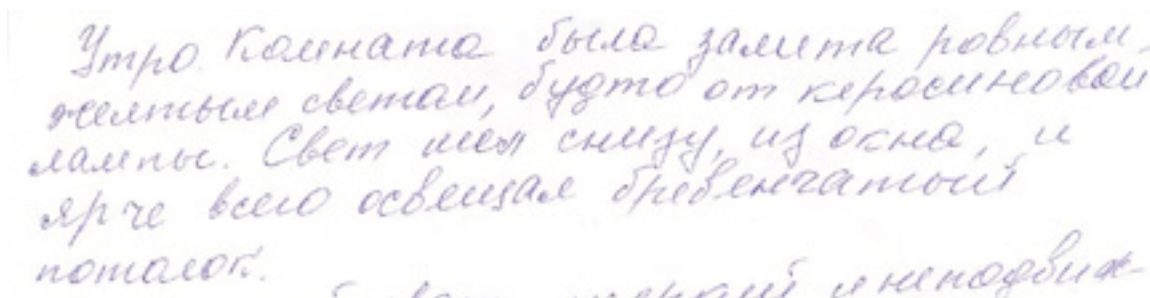 Утро. Комната была залита ровным
желтым светом, будто от керосиновой
лампы. Свет шел снизу, из окна, и
ярче всего освещал бревенчатый
потолок.
и неподвиж-